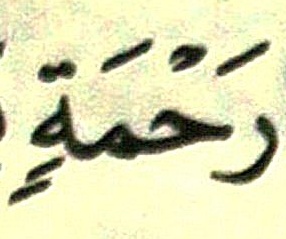 رَحْمَةٍ